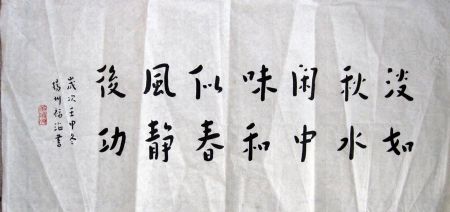 淡如
秋水
闲中
味和
似春
風静
後功
歲次壬申冬
揚州書